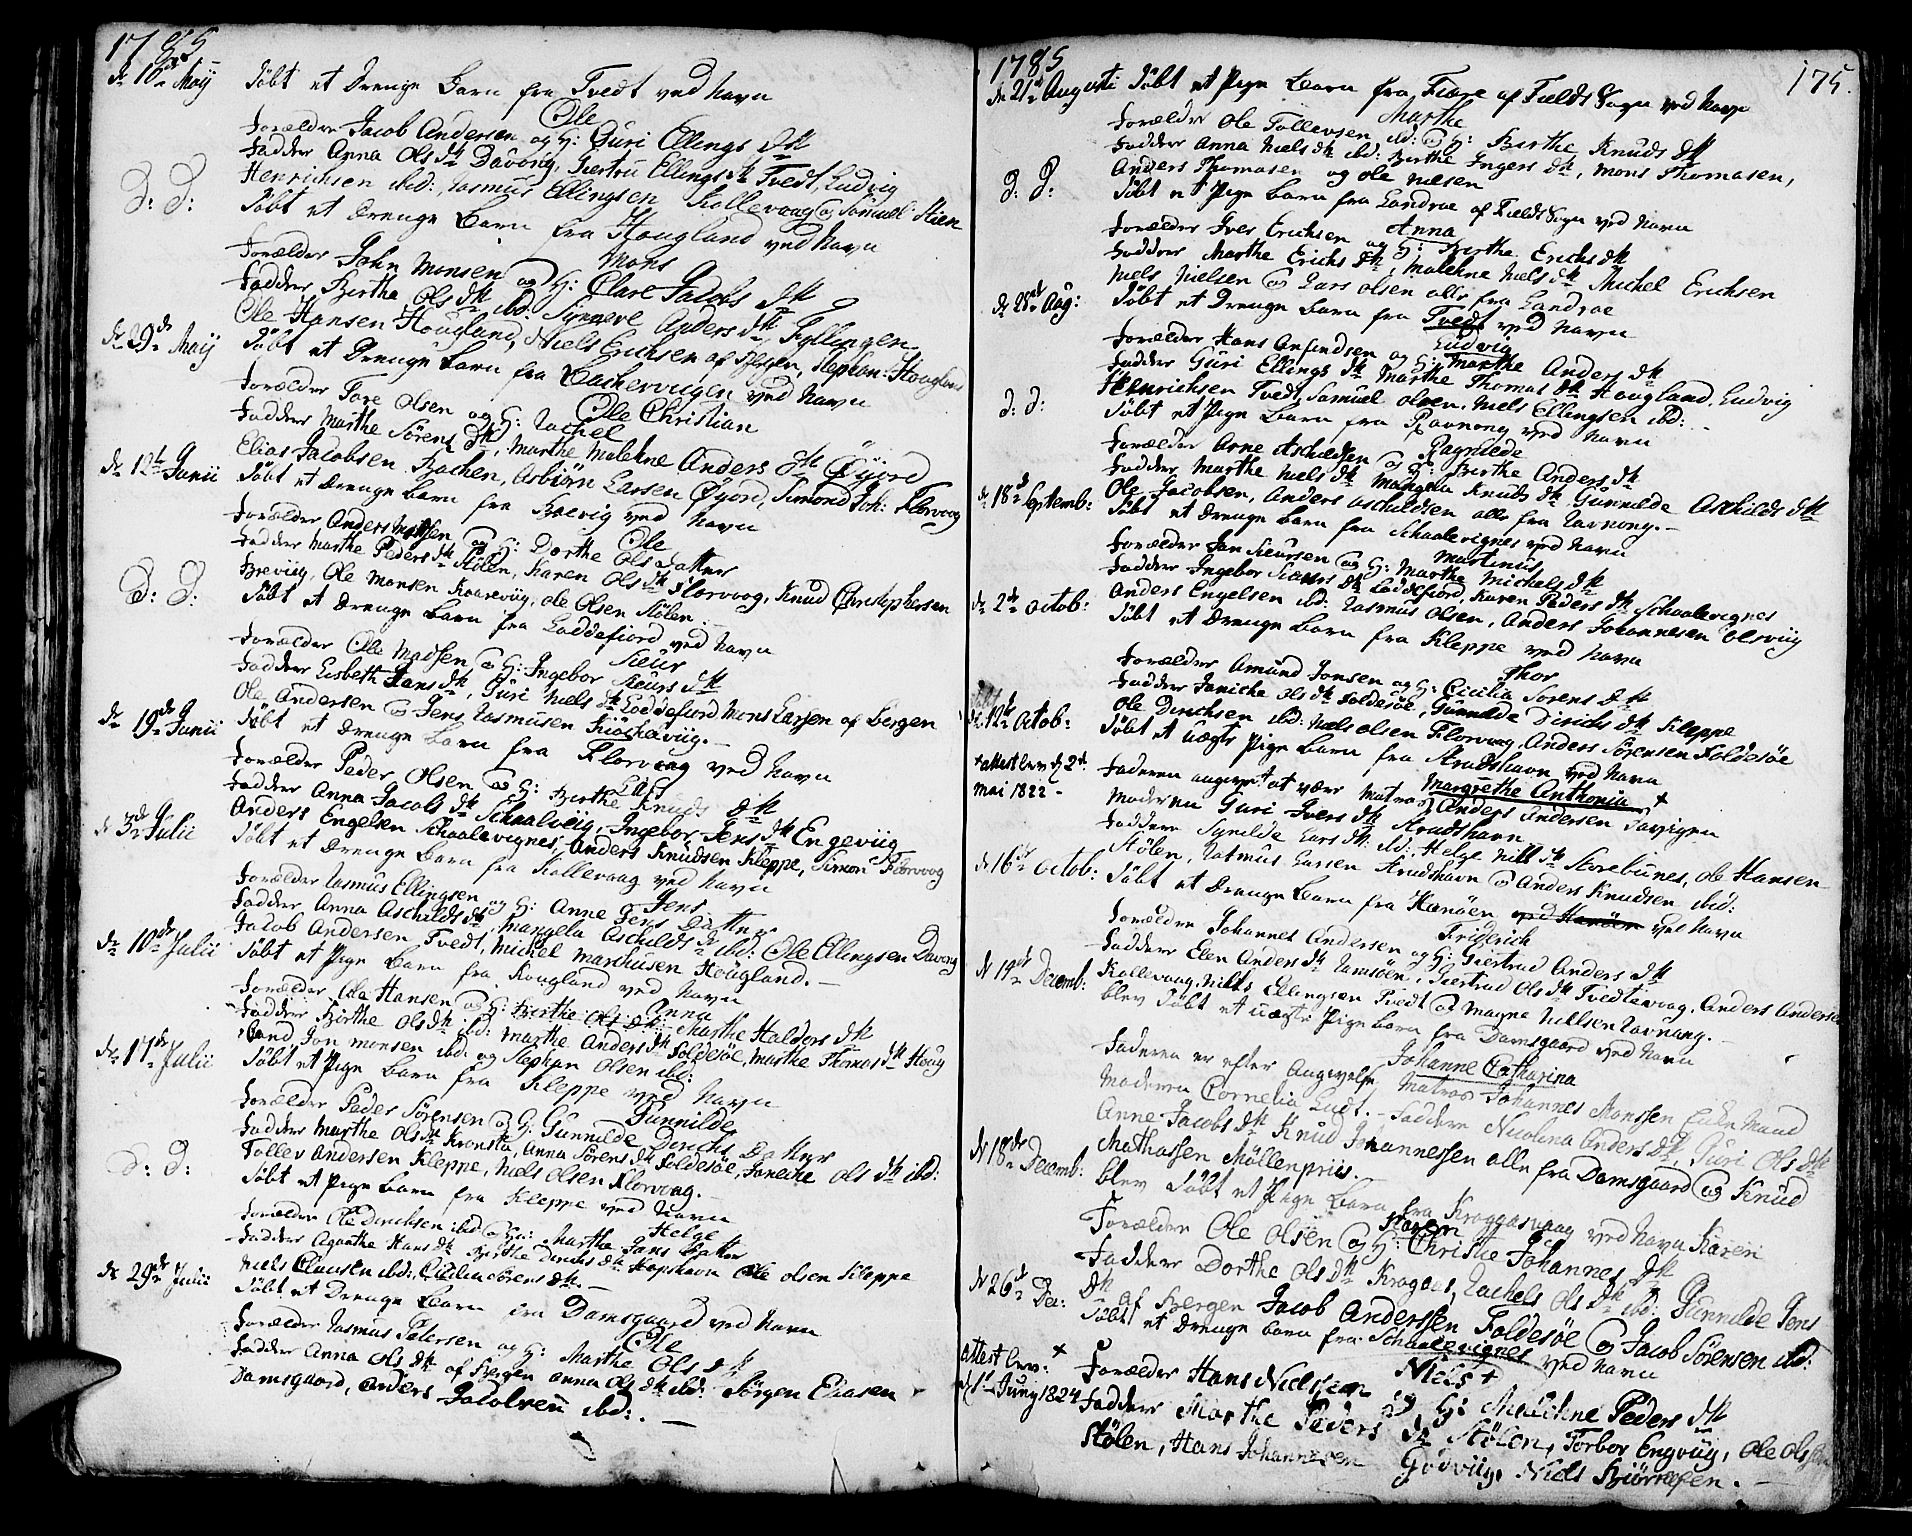 1785
d: 10de Maij Døbt et Drenge Barn fra Tvedt ved Navn
Ole
Forældre Jacob Andersen og H: Guri Ellings Dtt
Fadder Anna Ols Dtt Davong, Giertru Ellings Dtt Tvedt, Ludvig
Henrichsen ibd:, Rasmus Ellingsen Kollevaag og Samuel Stien
D: D: Døbt et Drenge Barn fra Hougland ved Navn
Mons
Forældre John Monsen og H: Clare Jacobs Dtt
Fadder Birthe Ols Dtt ibd: Synneve Anders Dtt, Fyllingen
Ole Hansen Hougland, Niels Erichsen af Bergen, Stephan: Hougland
d: 29de Maij Døbt et Drenge Barn fra Bachervigen ved Navn
Ole Christian
Forældre Tore Olsen og H: Rachel
Fadder Marthe Sørens Dtt, Marthe Malehne Anders Dtt Øÿord
Elias Jacobsen Bachen, Asbiørn Larsen Øyord, Simon Joh: Florvog
d: 12te Junii Døbt et Drenge Barn fra Boevig ved Navn
Ole
Forældre Anders Madsen og H: Dorthe Ols Datter
Fadder Marthe Peders Dtt StøLen, Karen Ols Dtt Florvoog, Knud Christophersen
Breviig, Ole Monsen Koareviig, Ole Olsen Stølen.
D: D: Døbt et Drenge Barn fra Loddefiord ved Navn
Sieur
Forældre Ole Madsen og H: Ingebor Sieurs Dtt
Fadder Lisbeth Hans Dtt, Guri Niels Dtt Loddefiord, Mons Larsen af Bergen
Ole Andersen og Jens Rasmusen Kiøcheviig.
d: 19de Junii Døbt et Drenge Barn fra Florvaag ved Navn
Lars
Forældre Peder Olsen og H: Birthe Knuds Dtt
Fadder Anna Jacobs Dtt Schaalvig, Ingebor Jens Dtt Engeviig
Anders Engelsen Schaalevignes, Anders Knudsen Kleppe, Simon Florvog
d: 3de Julii Døbt et Drenge Barn fra Kollevaag ved Navn
Jens
Forældre Rasmus Ellingsen og H: Anne Jens Datter
Fadder Anna Aschilds Dtt, Mangela Aschilds Dtt ibd: Ole Ellingsen Davong
Jacob Andersen Tvedt, Michel Marhusen Hougland.
d: 10de Julii Døbt et Pige Barn fra Hougland ved Navn
Anna
Forældre Ole Hansen og H: Birthe Ols Dtt
Fadder Birthe Ols Dtt ibd: Marthe Anders Dtt Foldesøe, Marthe Thomas Dtt Houg
land Jon Monsen ibd: og Stephan Olsen ibd:
d: 17de Julii Døbt et Pige Barn fra Kleppe ved Navn
Gunnilde
Forældre Peder Sørensen og H: Gunnilde Derichs Datter
Fadder Marthe Ols Dtt Kronsta, Anna Sørens Dtt Foldesøe, Janiche Ols Dtt ibd:
Tollev Andersen Kleppe, Niels Olsen Florvaag.
D: D: Døbt et Pige Barn fra Kleppe ved Navn
Helge
Forældre Ole Derichsen ibd og H: Marthe Jans Datter
Fadder Agaathe Hans Dtt Birthe Derichs Dtt Ole Olsen Kleppe
Niels Clausen ibd: Cicilia Sørens Dtt.
d: 29de Julii Døbt et Drenge Barn fra Damsgaard ved Navn
Ole
Forældre Rasmus Petersen og H: Marthe Ols Dtt
Fadder Anna Ols Dtt af Bergen Anna Ols Dtt ibd: Jørgen Eliasen
Damsgaard, Anders Jacobsen ibd:.
1785
175.
d: 21de Augusti Døbt et Pige Barn fra Fiære af Fields Sogn ved Navn
Marthe
Forældre Ole Tollevsen ibd: og H: Birthe Knuds Dtt
Fadder Anna Niels Dtt ibd: Birthe Ingers Dtt, Mons Thomasen,
Anders Thomasen og Ole Nilsen
D: D: Døbt et Pige Barn fra Landroe af Fields Sogn ved Navn
Anna
Forældre Iver Erichsen og H: Birthe Erichs Dtt
Fadder Marthe Erichs Dtt, Malehne Niels Dtt, Michel Erichsen
Niels Nielsen og Lars Olsen alle fra Landroe
d: 28de Aug: Døbt et Drenge Barn fra Tvedt ved Navn
Ludvig
Forældre Hans Anfindsen og H: Marthe Anders Dtt
Fadder Guri Ellings Dtt Marthe Thomas Dtt Hougland, Ludvig
Henrichsen Tvedt, Samuel Olsen, Niels Ellingsen ibd:
D: D: Døbt et Pige Barn fra Ravnong ved Navn
Ragnilde
Forældre Arne Aschildsen og H: Birthe Anders Dtt
Fadder Marthe Niels Dtt Mangela Knuds Dtt Gunnilde Aschilds Dtt
Ole Jacobsen, Anders Aschildsen alle fra Ravnong.
d: 18de Septemb: Døbt et Drenge Barn fra Schaalevignes ved Navn
Martinus
Forældre Jan Sieursen og H: Marthe Michels Dtt
Fadder Ingebor Sieurs Dtt Loddefiord, Karen Peders Dtt Schaalevignes
Anders Engelsen ibd: Rasmus Olsen, Anders Johannesen Olsviig
d: 2de Octob: Døbt et Drenge Barn fra Kleppe ved Navn
Thor
Forældre Amund Jonsen og H: Cicilia Sørens Dtt
Fadder Janiche Ols Dtt Foldesøe, Gunnilde Dirichs Dtt Kleppe
Ole Dirichsen ibd: Niels Olsen Florvaag Anders Sørensen Foldesøe
d: 12te Octob: Døbt et uægte Pige Barn fra Strudshavn ved Navn
Margrethe Anthonia +
+ attest lev d 2d Mai 1822 –
Faderen angivet at være Matros Anders Andersen
Moderen Guri Ivers Dtt Strudshavn
Fadder Synilde Lars Dtt ibd: Helge Nills Dtt Storebunes, Ole Hansen
Stølen, Rasmus Larsen Strudshavn og Anders Knudsen ibd:
d: 16de Octob: Døbt et Drenge Barn fra Hanøen ved Hanöen ved Navn
Friderich
Forældre Johannes Andersen og H: Giertrud Anders Dtt
Fadder Elen Anders Dtt Ramsøen, Giertrud Ols Dtt Tvedtevaag, Anders Anderse
Kollevaag, Nills Ellingsen Tvedt og Magne Nillsen Ravnang.
d: 14de Decemb: blev Døbt et uægte Pige Barn fra Damsgaard ved Navn
Johanne Catharina
Faderen er efter Angivelse Matros Johannes Monssen Enke Mand
Moderen Cornelia Ludt. – Faddere Nicolina Anders Dtt, Guri Ols Dtt
Anne Jacobs Dtt Knud Johannessen alle fra Damsgaard og Knud
Mathassen Møllenpriis.
d: 18de Decemb: blev Døbt et Pige Barn fra Kroggasvaag ved Navn Karen
Karen
Forældre Ole Olsen og H: Christie Johannes Dtt
Fadder Dorthe Ols Dtt Krogaas, Rachels Ols Dtt ibd: Gunnilde Jens
Dtt af Bergen Jacob Anderssen Foldesøe og Jacob Sørensen ibd:
d: 26de Dec: Døbt et Drenge Barn fra Schaalevignes ved Navn
Niels +
attest lev: + d 1 Juny 1824
Forældre Hans Nielssen og H: Malehne Peders Dtt
Fadder Marthe Peders Dtt Stølen, Torbor Engviig, Ole Olssen
Stølen, Hans Johannesen Godviig, Niels Biørnesen.